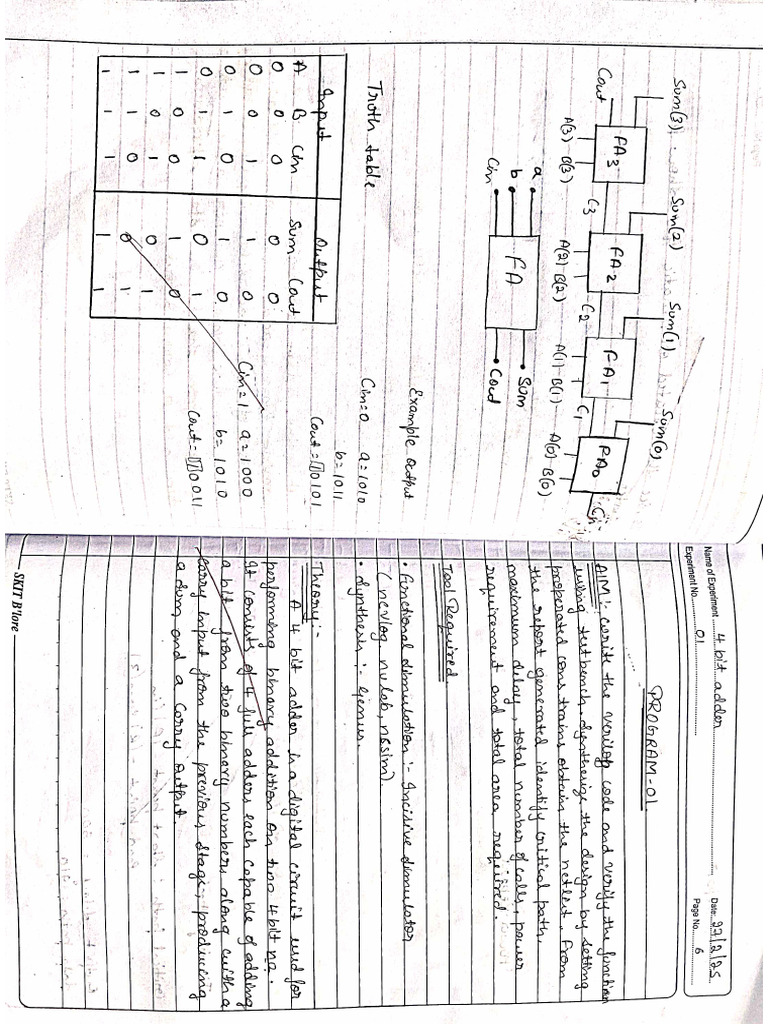 Sum(3) Sum(2) Sum(1) Sum(0)
FA3 FA2 FA1 FA0
Cout C3 C2 C1 Cin
A(3) B(3) A(2) B(2) A(1) B(1) A(0) B(0)
a
b
Cin
FA
Sum
Cout
Truth table
Input Output
A B Cin Sum Cout
0 0 0 0 0
0 0 1 1 0
0 1 0 1 0
0 1 1 0 1
1 0 0 1 0
1 0 1 0 1
1 1 0 0 1
1 1 1 1 1
Example output
Cin=0 a=1010
b=1011
Cout=10101
Cin=1 a=1000
b=1010
Cout=10011
Name of Experiment 4 bit adder Date: 27/2/25
Experiment No. 01 Page No. 6
PROGRAM-01
AIM:- write the verilog code and verify the function
using testbench synthesize the design by setting
properated constrains obtain the netlist. From
the report generated identify critical path,
maximum delay, total number of cells, power
requirement and total area required.
Tool Required
• Functional simulation :- Incisive simulator
(ncvlog, nulab, ncsim)
• Synthesis :- Genus.
Theory:-
A 4 bit adder is a digital circuit used for
performing binary addition on two 4 bit no.
It consists of 4 full adders each capable of adding
a bit from two binary numbers along with a
carry input from the previous stage, producing
a sum and a carry output.
SKIT B'lore